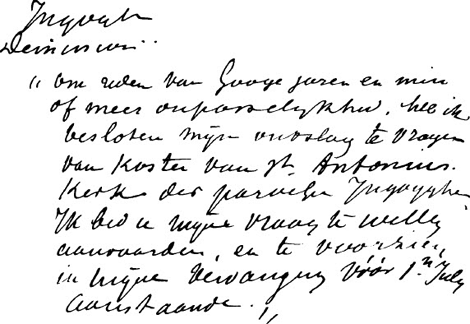 Ingoyghem
„ om reden van hooge jaren en min
of meer onpasselijkheid, heb ik
besloten mijn ontslag te vragen
van Koster van St. Antonius.
Kerk der parochie Ingoyghem.
Ik bid u mijne vraag te willen
aanvaarden, en te voorzien,
in mijne vervanging vóór 1n July
aanstaande. „